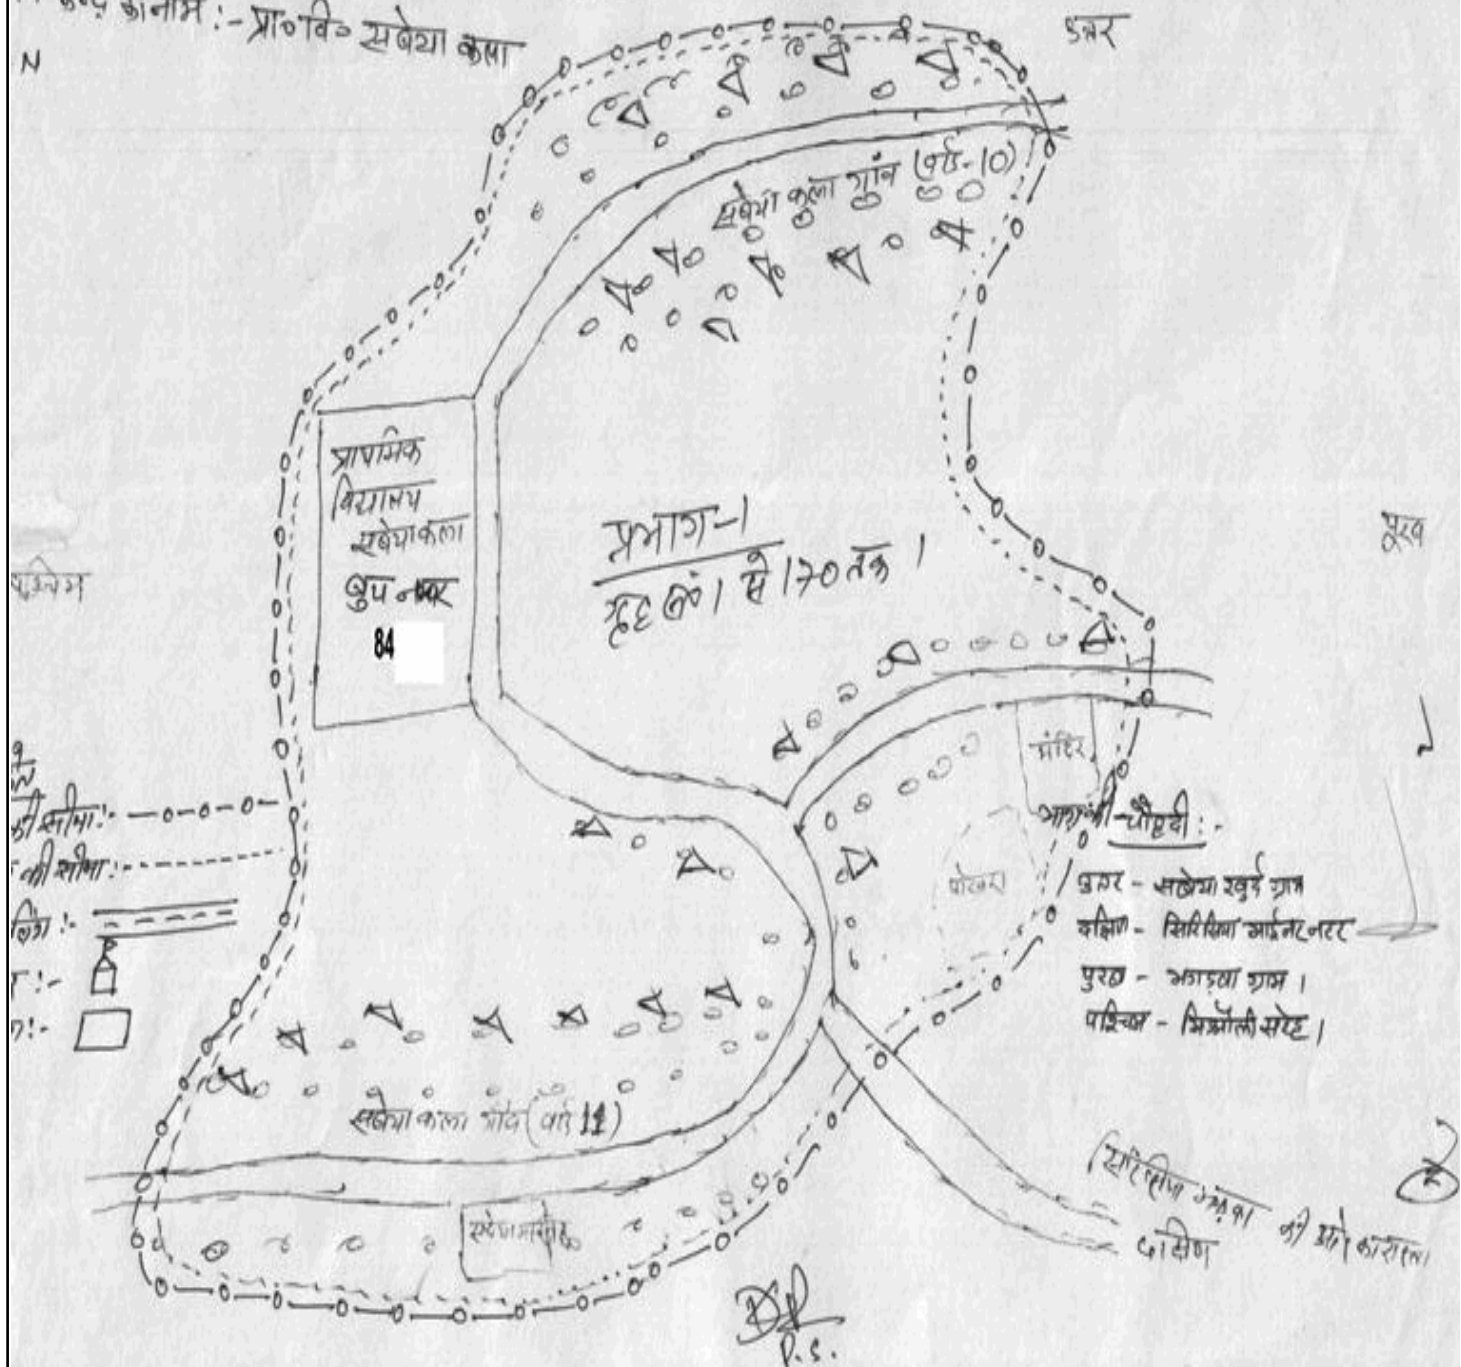 का नाम :- प्रा० वि० सबेया कला
N
उत्तर
सबेया कला गांव (वार्ड-10)
प्राथमिक
विद्यालय
सबेया कला
बुथ नम्बर
84
प्रभाग-1
गृह सं० 1 से 170 तक ।
पूरब
पश्चिम
मंदिर
पोखरा
की सीमा :-
की सीमा :-
भाग की चौहद्दी :-
उत्तर - सबेया खुर्द ग्राम
दक्षिण - सिरिसिया माईनर नहर
पुरब - भगड़वा ग्राम ।
पश्चिम - सरेह ।
सबेया कला गांव (वार्ड 11)
की ओर का रास्ता
दक्षिण
P.S.